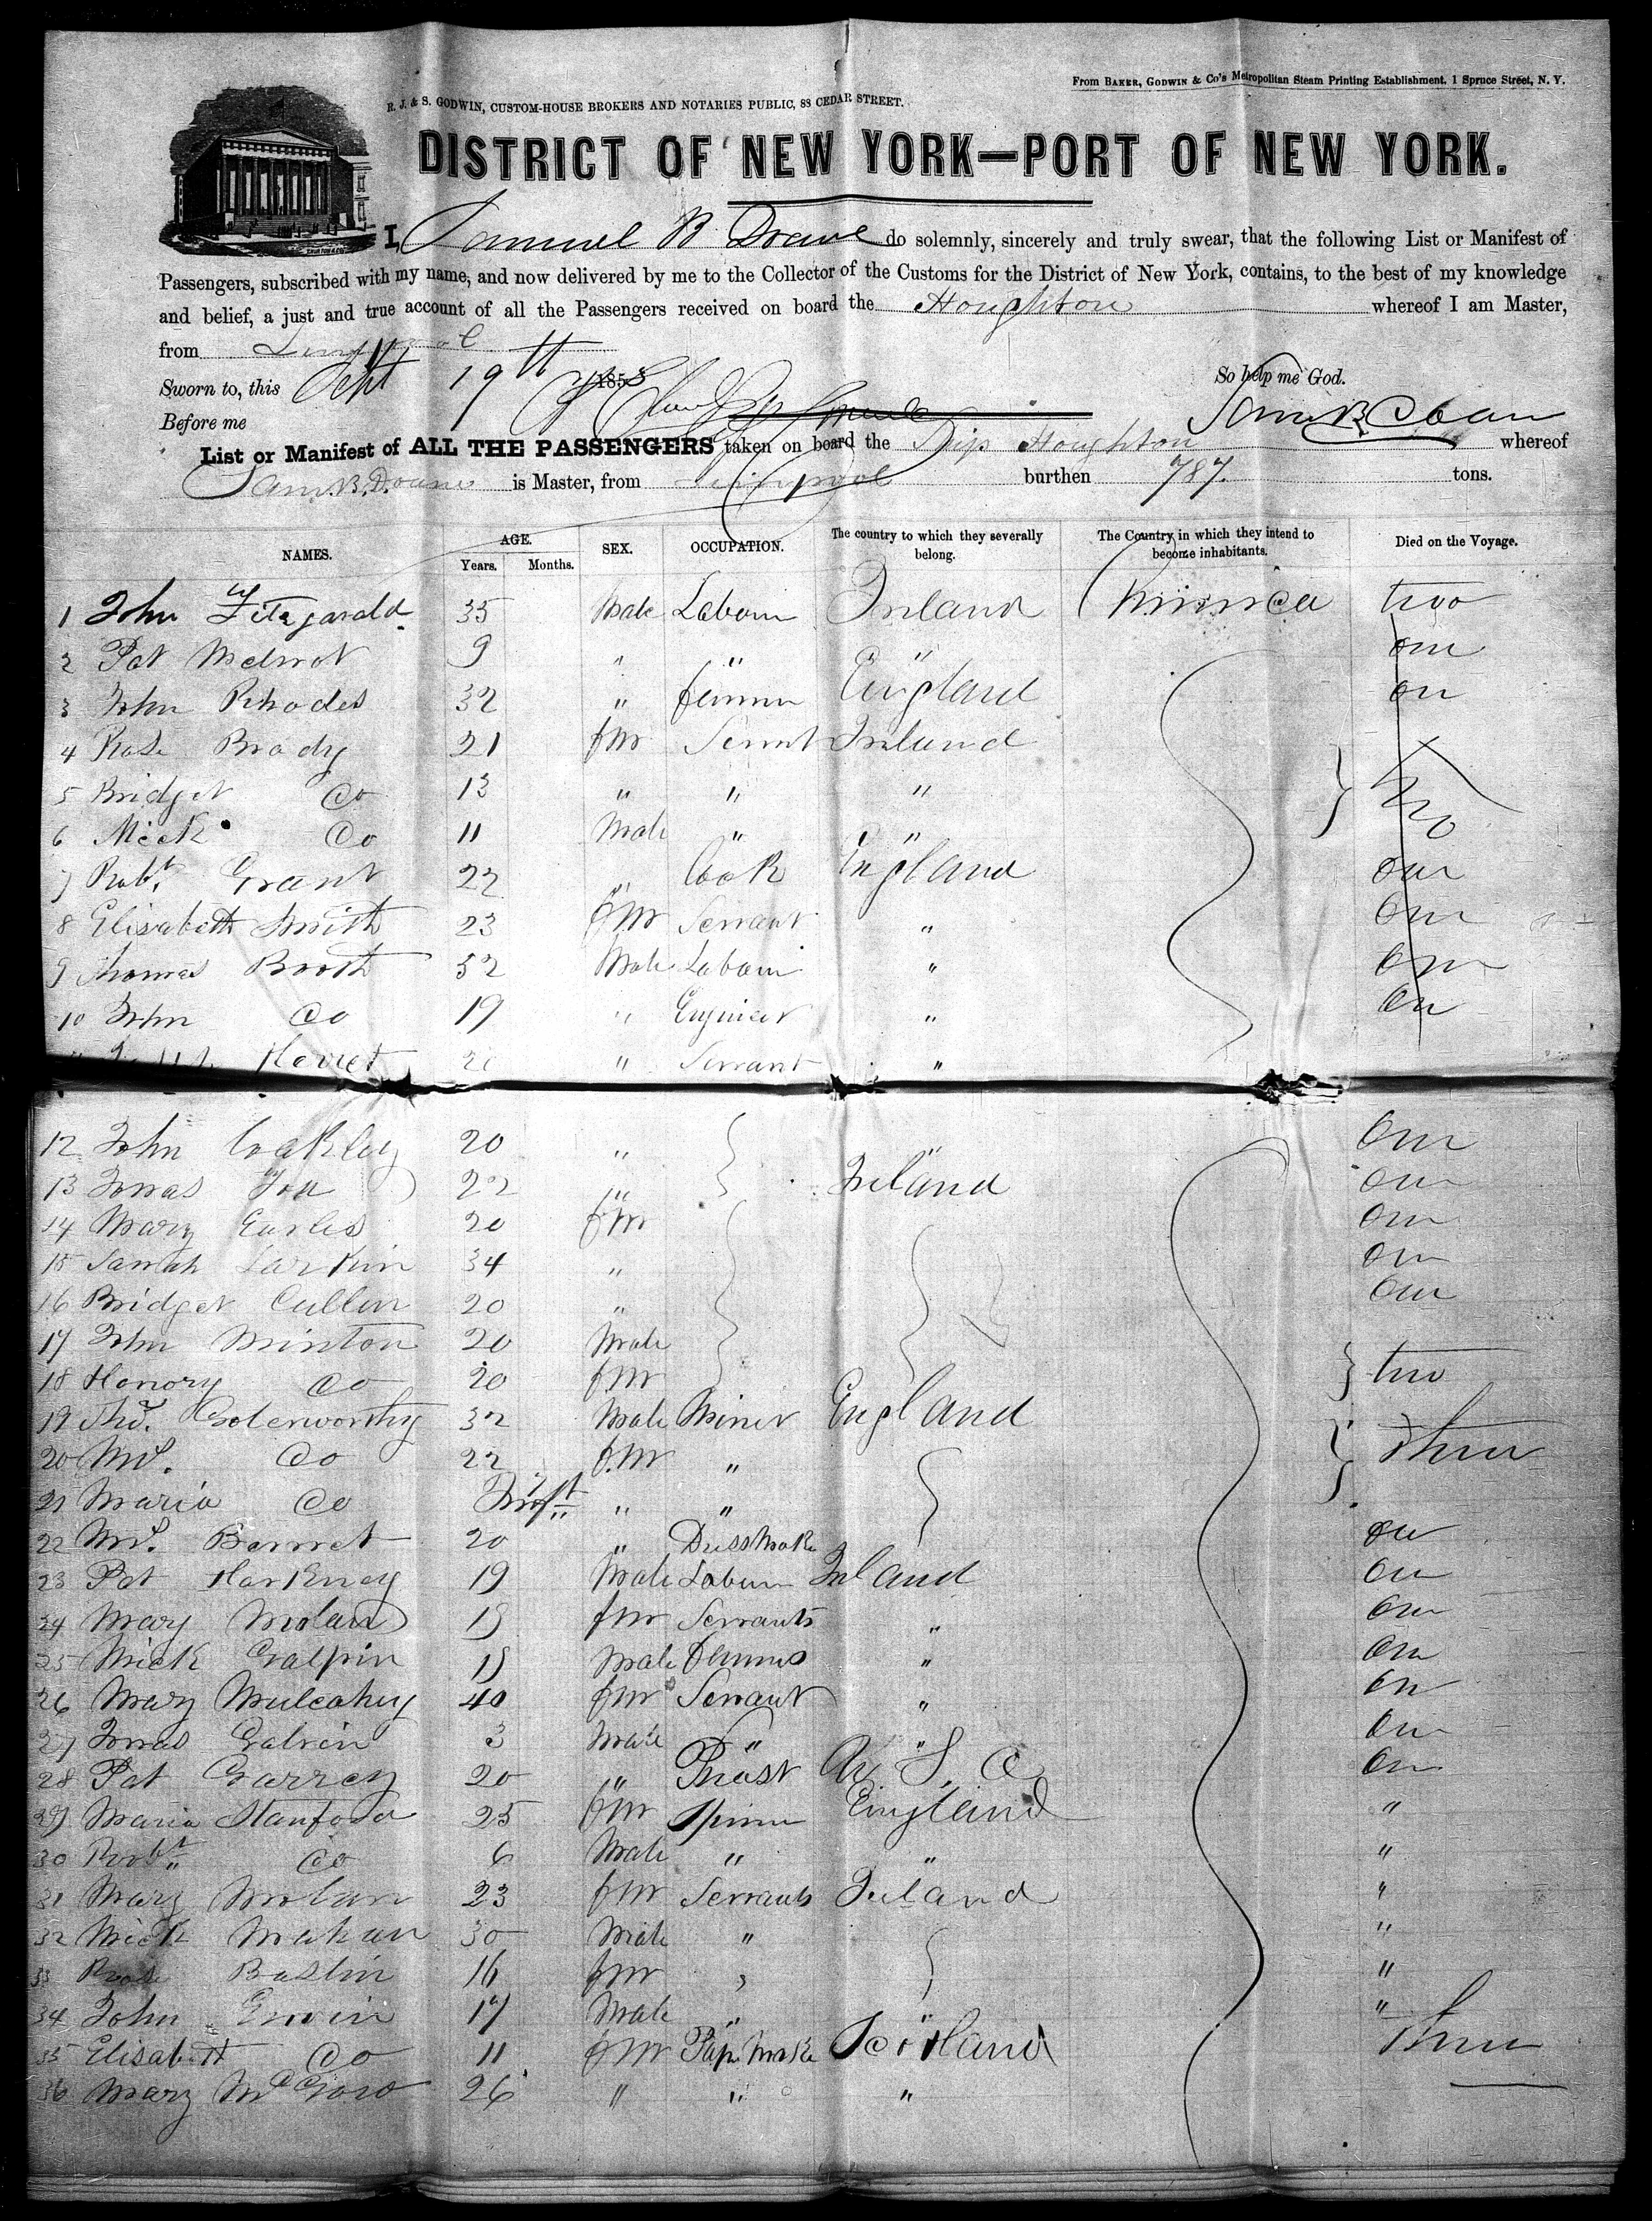 From BAKER, GODWIN & Co's Metropolitan Steam Printing Establishment. 1 Spruce Street, N. Y.
R. J. & S. GODWIN, CUSTOM-HOUSE BROKERS AND NOTARIES PUBLIC, 88 CEDAR STREET.
DISTRICT OF NEW YORK—PORT OF NEW YORK.
I, Samuel B Doane do solemnly, sincerely and truly swear, that the following List or Manifest of
Passengers, subscribed with my name, and now delivered by me to the Collector of the Customs for the District of New York, contains, to the best of my knowledge
and belief, a just and true account of all the Passengers received on board the Houghton whereof I am Master,
from Liverpool
Sworn to, this Sept 19th 1853 So help me God.
Before me Sam B Doane
List or Manifest of ALL THE PASSENGERS taken on board the Ship Houghton whereof
Sam. B. Doane is Master, from Liverpool burthen 787. tons.
NAMES. AGE. Years. Months. SEX. OCCUPATION. The country to which they severally belong. The Country in which they intend to become inhabitants. Died on the Voyage.
1 John Fitzgarald 35 Male Labour Ireland America two
2 Pat 9 " " " one
3 John Rhodes 32 " England on
4 Rose Brady 21 fm Servnt Ireland
5 Bridget Do 13 " " "
6 Mick Do 11 Male " "
7 Robt. Grant 22 " Cook England one
8 Elisabeth Smith 23 fm Servant " one
9 Thomas Booth 52 Male Labour " one
10 John Do 19 " Engineer " on
20 " Servant "
12 John Coakley 20 " " one
13 22 " Ireland one
14 Mary Earles 20 fm one
15 Sarah Larkin 34 " one
16 Bridget Cullen 20 " one
17 John Minton 20 Male
18 Honory Do 20 fm two
19 Thos. Golsworthy 32 Male Miner England
20 Mrs. Do 22 fm " three
21 Maria Do Infst " "
22 Mrs. Barnet 20 " Dressmake one
23 Pat Harkney 19 Male Labour Ireland one
24 Mary Nolan 19 fm Servants " one
25 Mick Galpin 19 Male " one
26 Mary Mulcahy 40 fm Servant " on
27 Galvin 3 Male " " one
28 Pat Garrey 20 " Priest U. S. A one
29 Maria Stanford 25 fm Spinner England "
30 Robt. Do 6 Male " " "
31 Mary Nolan 23 fm Servants Ireland "
32 Mick Mahan 30 Male " "
33 Rose Baslin 16 fm " "
34 John Erwin 17 Male " " "
35 Elisabett Do 11 fm Pap. Make Scotland three
36 Mary McGow 26 " " "